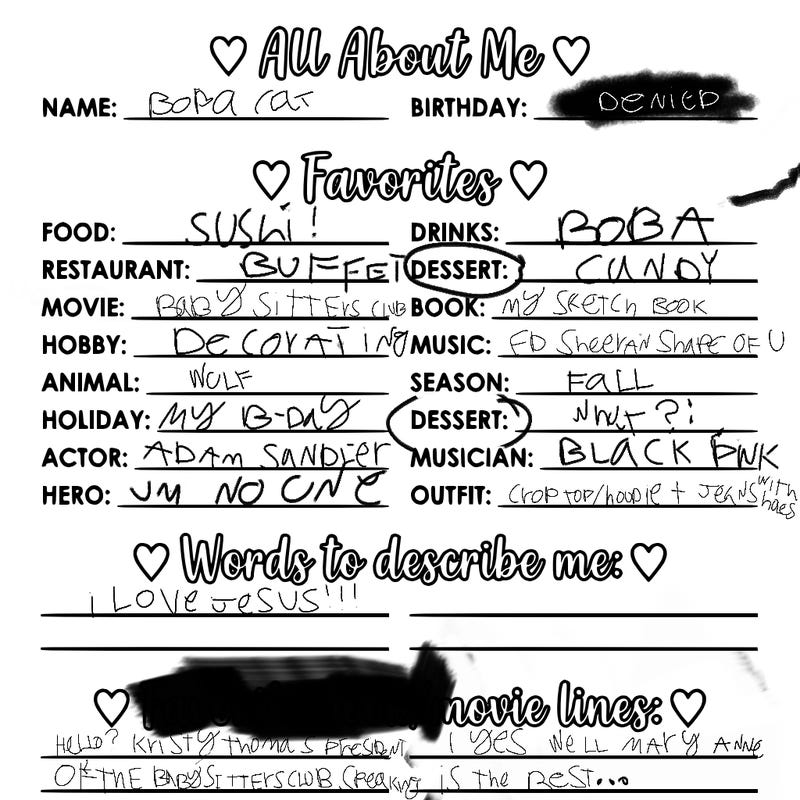 All About Me
NAME: BOBA CAT BIRTHDAY: DENIED
Favorites
FOOD: SUSHi! DRINKS: BOBA
RESTAURANT: BUFFET DESSERT: CANDY
MOVIE: BABY SITTErs CluB BOOK: MY SKetch BOOK
HOBBY: DeCOrATiNg MUSIC: ED SheerAN ShaPe OF U
ANIMAL: WOLF SEASON: FaLL
HOLIDAY: MY B-DaY DESSERT: whaT?!
ACTOR: ADAm SANDLer MUSICIAN: BLACK PINK
HERO: UM NO ONe OUTFIT: CroP TOP/hooDIe + JeaNS WITH Shoes
Words to describe me:
i LOVe JeSUS!!!
movie lines:
HeLLO? KriSTY ThOmaS PreSIDeNT I YeS WeLL MArY ANNe
OF THE BABYSITTERSCLUB SPeaKiNg IS The BeST...